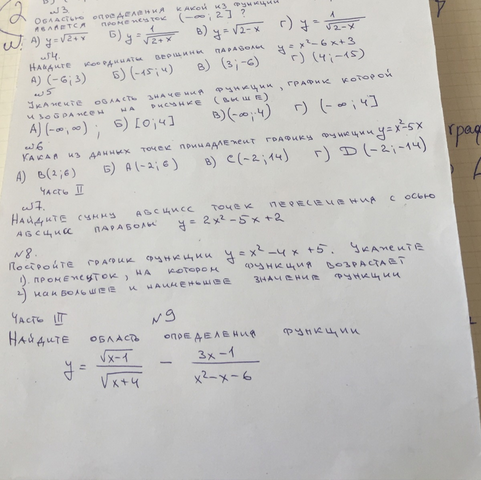 2
№3
Областью определения какой из функций
является промежуток (-∞; 2] ?
А) y=√2+x Б) y=1/√2+x В) y=√2-x Г) y=1/√2-x
№4
Найдите координаты вершины параболы y=x²-6x+3
А) (-6;3) Б) (-15;4) В) (3;-6) Г) (4;-15)
№5
Укажите область значения функции, график которой
изображён на рисунке (выше)
А) (-∞,∞); Б) [0;4] В) (-∞;4) Г) (-∞;4]
№6
Какая из данных точек принадлежит графику функции y=x²-5x
А) B(2;6) Б) A(-2;6) В) C(-2;14) Г) D(-2;-14)
Часть II
№7.
Найдите сумму абсцисс точек пересечения с осью
абсцисс параболы y=2x²-5x+2
№8.
Постройте график функции y=x²-4x+5. Укажите
1). промежуток, на котором функция возрастает
2) наибольшее и наименьшее значение функции
Часть III №9
Найдите область определения функции
y = √x-1/√x+4 - 3x-1/x²-x-6